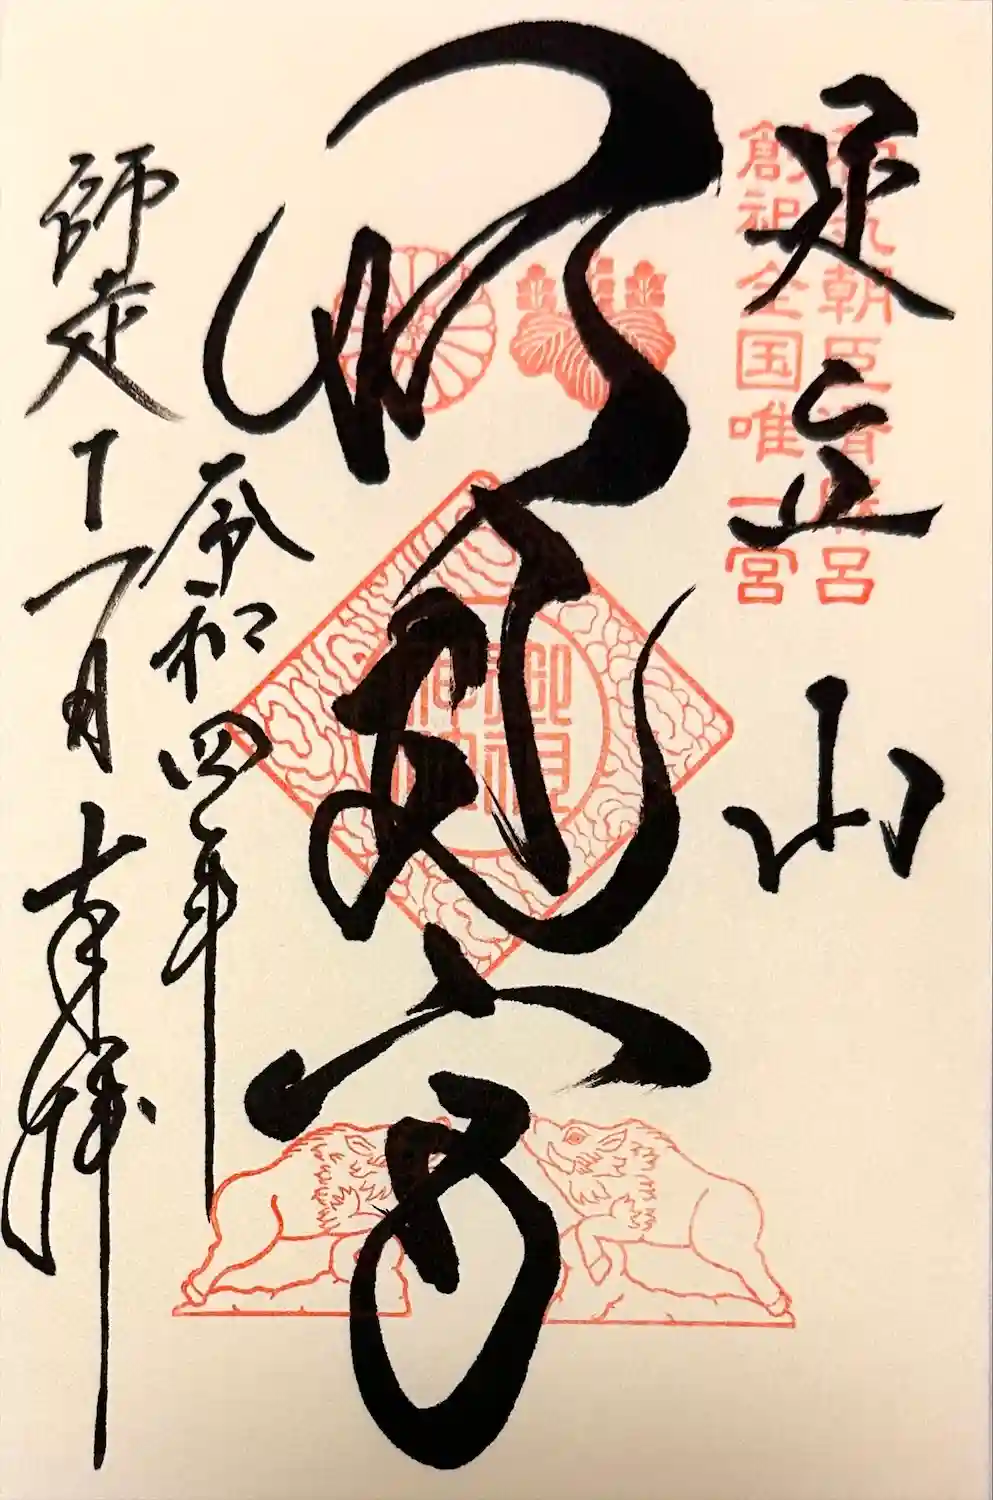 足立山
和気朝臣清麻呂
創祀全国唯一宮
妙見宮
御祖
神社
令和四年
師走十一日奉拝